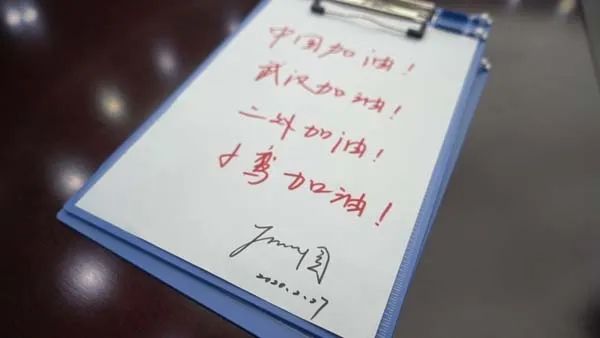 中国加油!
武汉加油!
二外加油!
加油!
2020.2.27